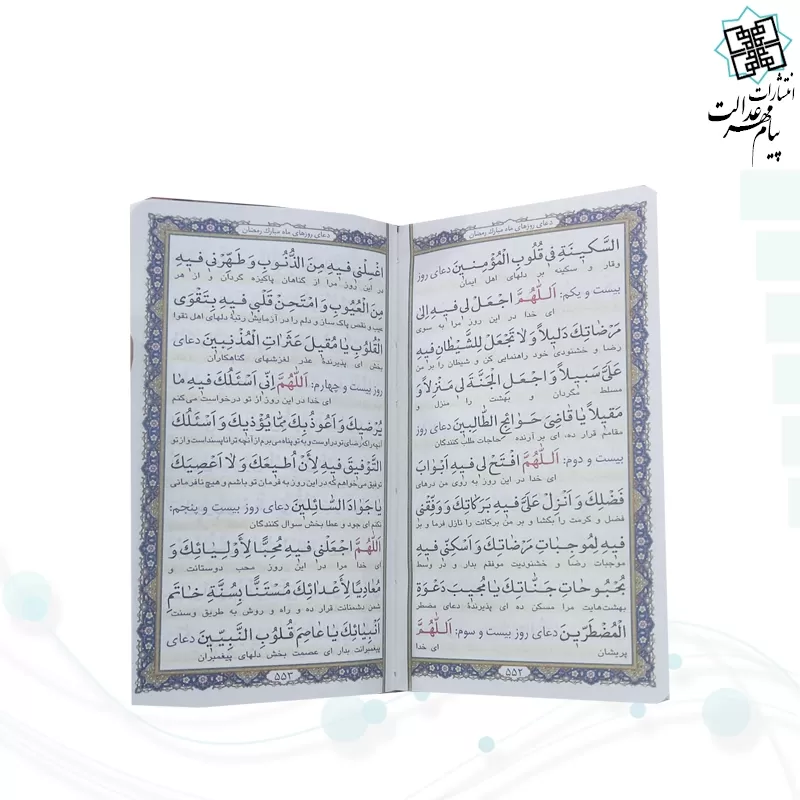 انتشارات
پیام مهر عدالت
دعای روزهای ماه مبارک رمضان
السَّكِينَةِ فِي قُلُوبِ الْمُؤْمِنِينَ دعای روز
وقار و سکینه بر دلهای اهل ایمان
بیست و یکم: اَللّٰهُمَّ اجْعَلْ لِي فِيهِ اِلىٰ
ای خدا در این روز مرا به سوی
مَرْضَاتِكَ دَلِيلاً وَ لا تَجْعَلْ لِلشَّيْطَانِ فِيهِ
رضا و خشنودی خود راهنمایی کن و شیطان را بر من
عَلَيَّ سَبِيلاً وَ اجْعَلِ الْجَنَّةَ لِي مَنْزِلاً وَ
مسلط مگردان و بهشت را منزل و
مَقِيلاً يَا قَاضِيَ حَوَائِجِ الطَّالِبِينَ دعای روز
مقامم قرار ده، ای بر آرنده حاجات طلب کنندگان
بیست و دوم: اَللّٰهُمَّ افْتَحْ لِي فِيهِ اَبْوَابَ
ای خدا در این روز به روی من درهای
فَضْلِكَ وَ اَنْزِلْ عَلَيَّ فِيهِ بَرَكَاتِكَ وَ وَفِّقْنِي
فضل و کرمت را بگشا و بر من برکاتت را نازل فرما و بر
فِيهِ لِمُوجِبَاتِ مَرْضَاتِكَ وَ اَسْكِنِّي فِيهِ
موجبات رضا و خشنودیت موفقم بدار و در وسط
بُحْبُوحَاتِ جَنَّاتِكَ يَا مُجِيبَ دَعْوَةِ
بهشت‌هایت مرا مسکن ده ای پذیرندهٔ دعای مضطر
الْمُضْطَرِّينَ دعای روز بیست و سوم: اَللّٰهُمَّ
پریشان ای خدا
۵۵۲
دعای روزهای ماه مبارک رمضان
اغْسِلْنِي فِيهِ مِنَ الذُّنُوبِ وَ طَهِّرْنِي فِيهِ
در این روز مرا از گناهان پاکیزه گردان و از هر
مِنَ الْعُيُوبِ وَ امْتَحِنْ قَلْبِي فِيهِ بِتَقْوَى
عیب و نقص پاک ساز و دلم را در آزمایش رتبهٔ دلهای اهل تقوا
الْقُلُوبِ يَا مُقِيلَ عَثَرَاتِ الْمُذْنِبِينَ دعای
بخش ای پذیرندهٔ عذر لغزشهای گناهکاران
روز بیست و چهارم: اَللّٰهُمَّ اِنِّي اَسْئَلُكَ فِيهِ مَا
ای خدا در این روز از تو درخواست می‌کنم
يُرْضِيكَ وَ اَعُوذُ بِكَ مِمَّا يُؤْذِيكَ وَ اَسْئَلُكَ
آنچه را که رضای تو در اوست و به تو پناه می‌برم از آنچه ترا ناپسند است و از تو
التَّوْفِيقَ فِيهِ لِأَنْ اُطِيعَكَ وَ لا اَعْصِيَكَ
توفیق می‌خواهم که در این روز به فرمان تو باشم و هیچ نافرمانی
يَا جَوَادَ السَّائِلِينَ دعای روز بیست و پنجم:
نکنم ای جود و عطا بخش سوال کنندگان
اَللّٰهُمَّ اجْعَلْنِي فِيهِ مُحِبًّا لِأَوْلِيَائِكَ وَ
ای خدا مرا در این روز محب دوستانت و
مُعَادِيًا لِأَعْدَائِكَ مُسْتَنًّا بِسُنَّةِ خَاتَمِ
دشمن دشمنانت قرار ده و راه و روش به طریق وسنت
اَنْبِيَائِكَ يَا عَاصِمَ قُلُوبِ النَّبِيِّينَ دعای
پیغمبرانت بدار ای عصمت بخش دلهای پیغمبران
۵۵۳